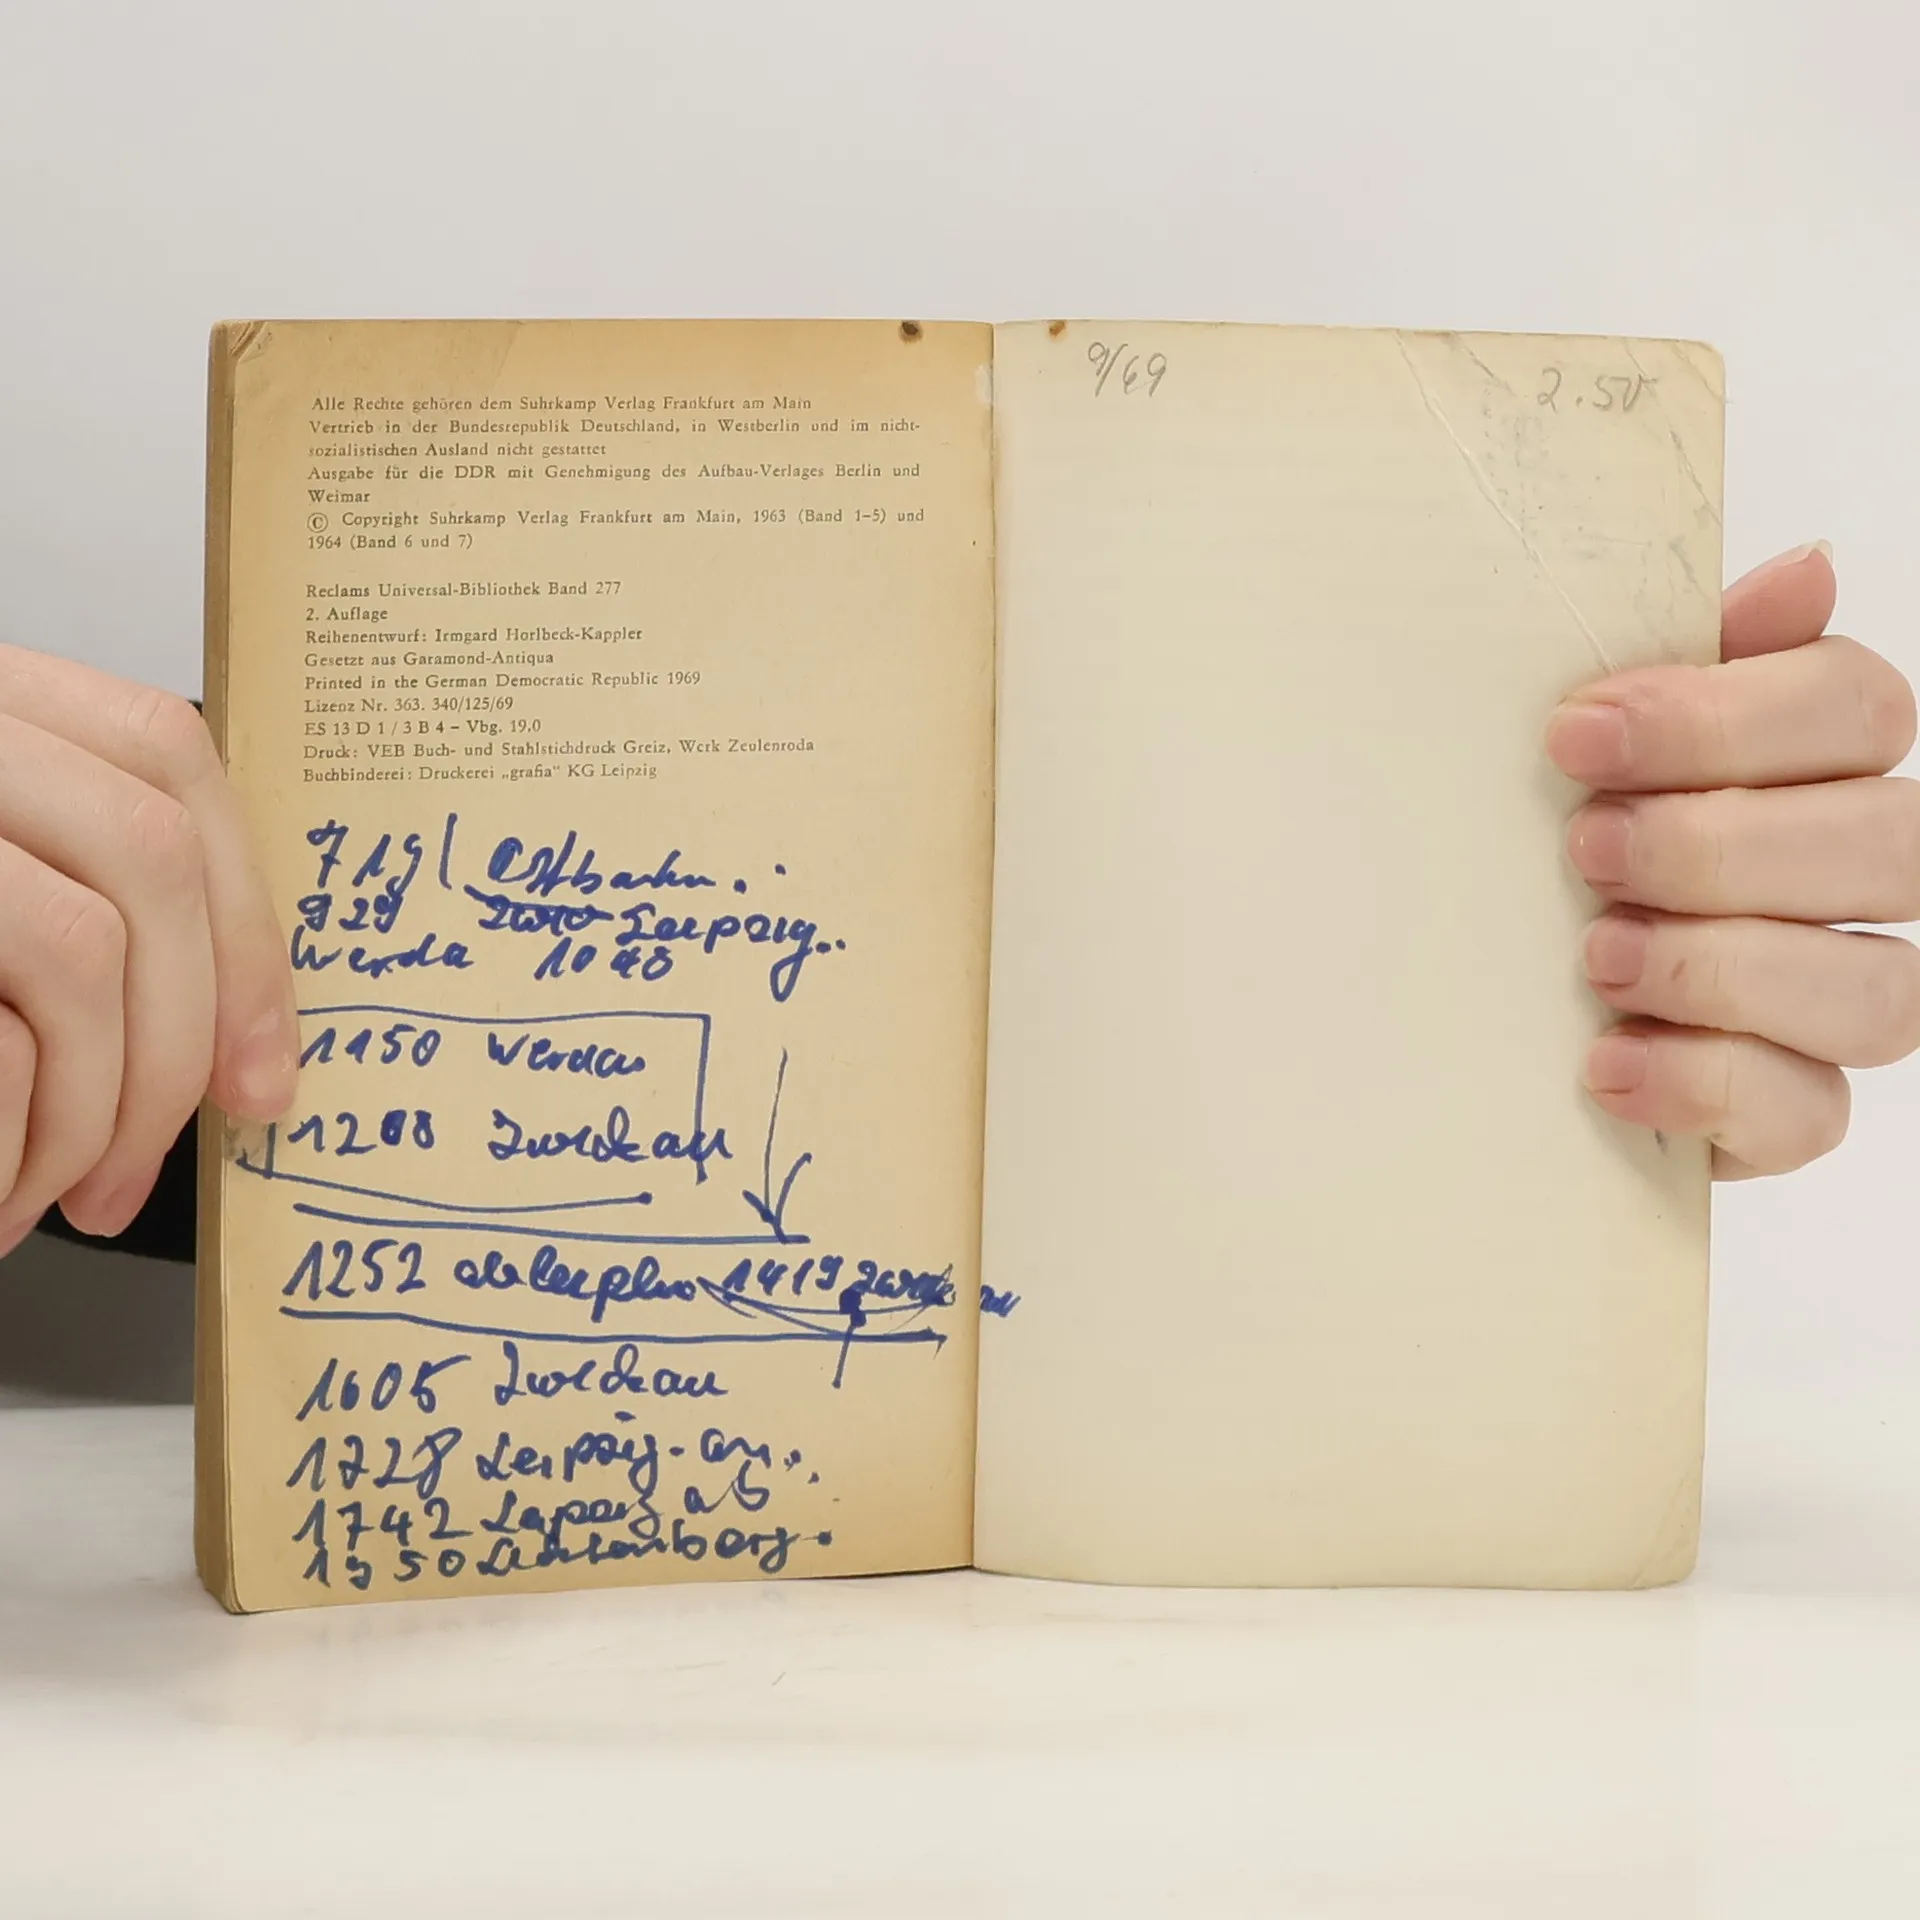 Alle Rechte gehören dem Suhrkamp Verlag Frankfurt am Main
Vertrieb in der Bundesrepublik Deutschland, in Westberlin und im nicht-
sozialistischen Ausland nicht gestattet
Ausgabe für die DDR mit Genehmigung des Aufbau-Verlages Berlin und
Weimar
© Copyright Suhrkamp Verlag Frankfurt am Main, 1963 (Band 1–5) und
1964 (Band 6 und 7)
Reclams Universal-Bibliothek Band 277
2. Auflage
Reihenentwurf: Irmgard Horlbeck-Kappler
Gesetzt aus Garamond-Antiqua
Printed in the German Democratic Republic 1969
Lizenz Nr. 363. 340/125/69
ES 13 D 1 / 3 B 4 – Vbg. 19,0
Druck: VEB Buch- und Stahlstichdruck Greiz, Werk Zeulenroda
Buchbinderei: Druckerei „grafia“ KG Leipzig
719
929 Leipzig..
Werda 1048
1150 Werdau
Zwickau
1252 ab 1419
1605 Zwickau
1728 Leipzig - an..
1742 Leipzig ab
1950
9/69
2.50